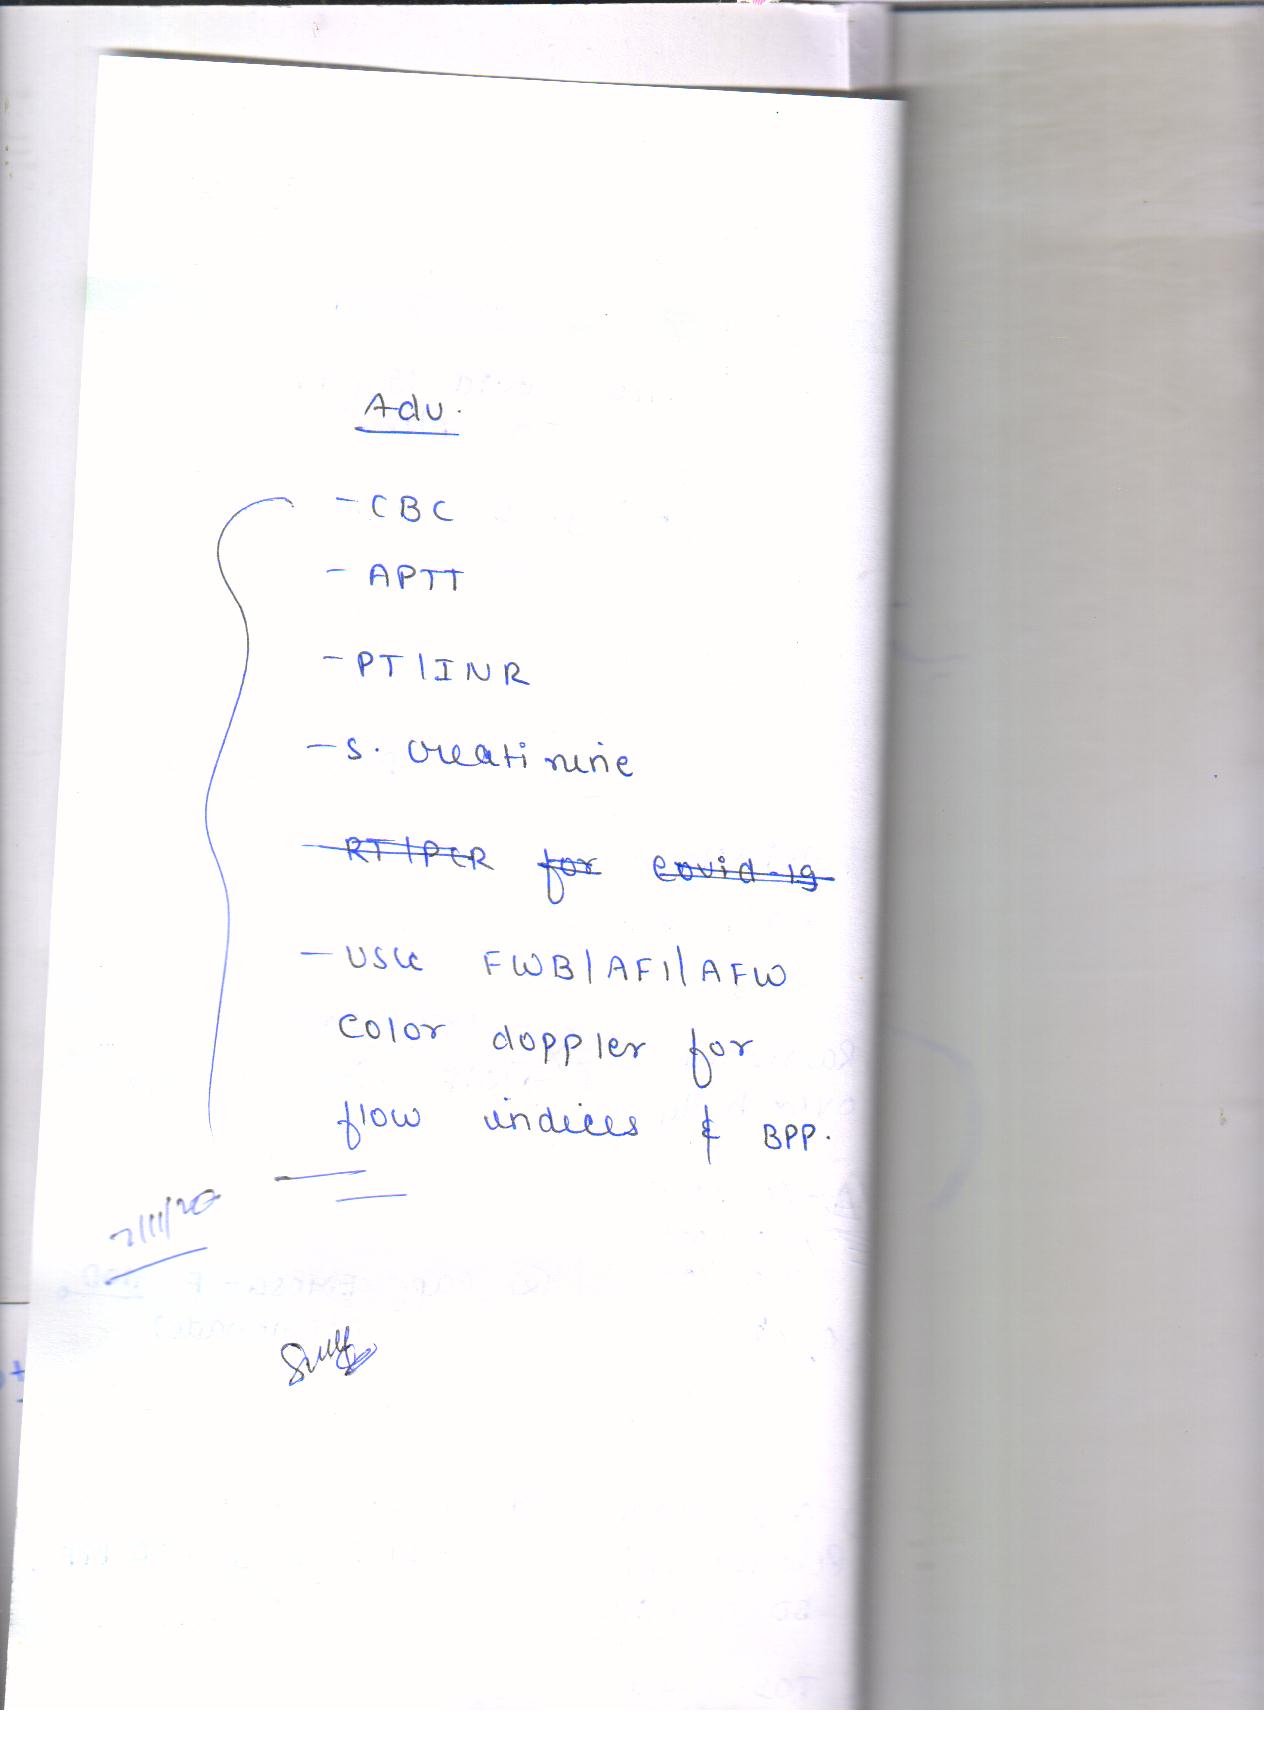 Adv.
- CBC
- APTT
- PT/INR
- S. creatinine
- RT/PCR for covid-19
- USG FWB/AFI/AFW
Color doppler for
flow indices & BPP.
2/11/20